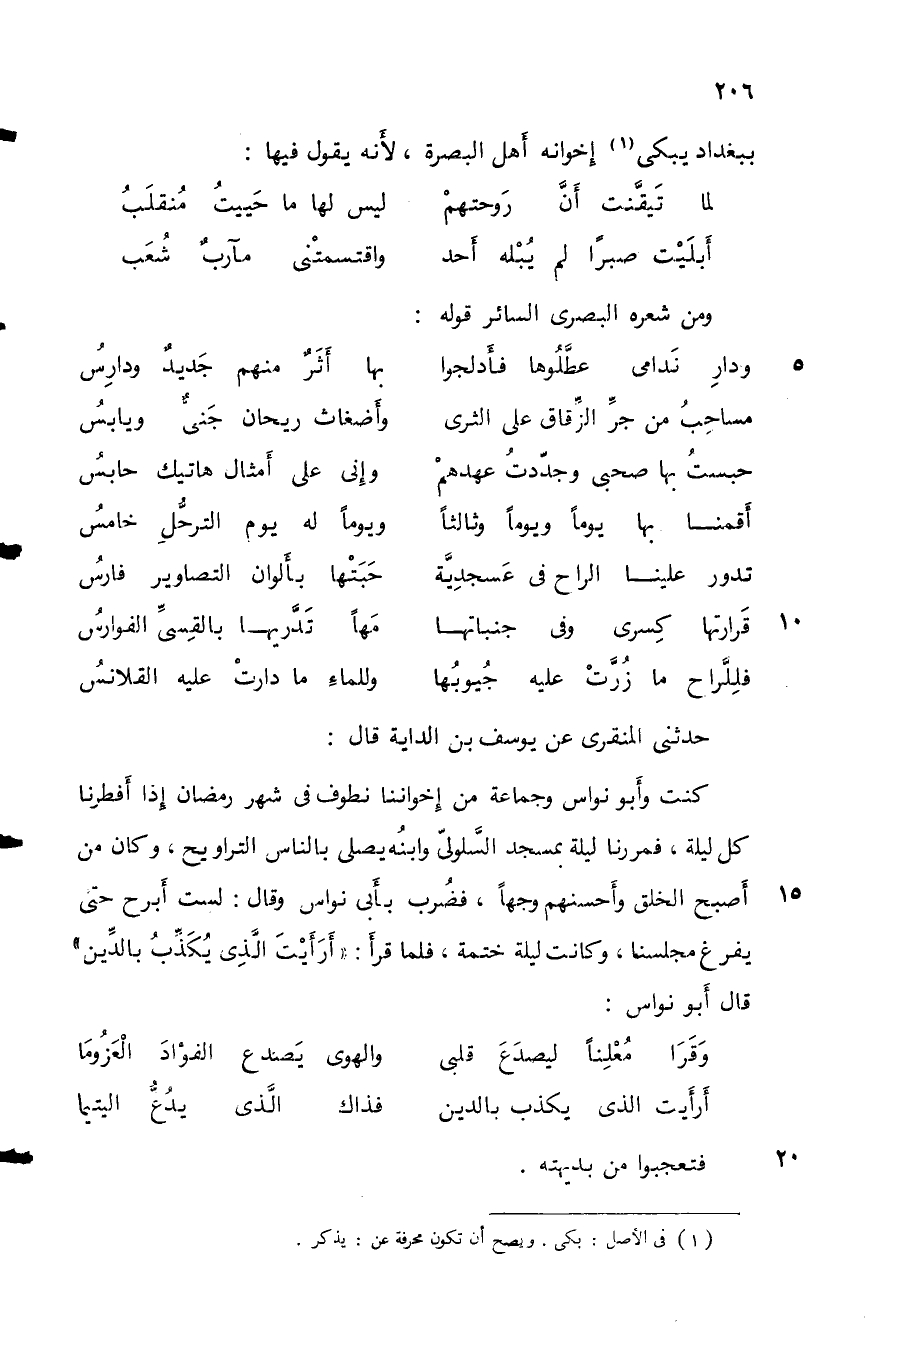 ٢٠٦
ببغداد يبكى(١) إخوانه أهل البصرة ، لأَنه يقول فيها :
لما تَيقَّنت أَنَّ رَوحتهمْ ليس لها ما حَييتُ مُنقلَبُ
أَبلَيْت صبرًا لم يُبْله أَحد واقتسمتْنى مآربٌ شُعَب
ومن شعره البصرى السائر قوله :
٥ ودارِ نَدامى عطَّلُوها فأَدلجوا بها أَثَرٌ منهم جَديدٌ ودارِسُ
مساحِبُ من جرِّ الزِّقاق على الثرى وأَضغاث ريحان جَنىٌّ ويابسُ
حبستُ بها صحبى وجدّدتُ عهدهمْ وإنى على أَمثال هاتيك حابسُ
أَقمنــا بها يوماً ويوماً وثالثاً ويوماً له يوم الترحُّلِ خامسُ
تدور علينــا الراح فى عَسجديَّة حَبَتْها بأَلوان التصاوير فارسُ
١٠ قَرارتها كِسرى وفى جنباتهــا مَهاً تَدَّريهــا بالقِسىِّ الفوارسُ
فلِلَّراح ما زُرَّتْ عليه جُيوبُها وللماء ما دارتْ عليه القلانسُ
حدثنى المنقرى عن يوسف بن الداية قال :
كنت وأَبو نواس وجماعة من إخواننا نطوف فى شهر رمضان إذا أَفطرنا
كل ليلة ، فمررنا ليلة بمسجد السَّلولىّ وابنُه يصلى بالناس التراويح ، وكان من
١٥ أَصبح الخلق وأَحسنهم وجهاً ، فضُرب بأَبى نواس وقال : لست أَبرح حتىّ
يفرغ مجلسنا ، وكانت ليلة ختمة ، فلما قرأَ : « أَرَأَيْتَ الَّذِى يُكَذِّبُ بالدِّين »
قال أَبو نواس :
وَقَرَا مُعْلِناً ليصدَعَ قلبى والهوى يَصندع الفوْادَ الْعَزُومَا
أَرأَيت الذى يكذب بالدين فذاك الَّذى يدُعُّ اليتيما
٢٠ فتعجبوا من بديهته .
(١) فى الأصل : بكى . ويصح أن تكون محرفة عن : يذكر .